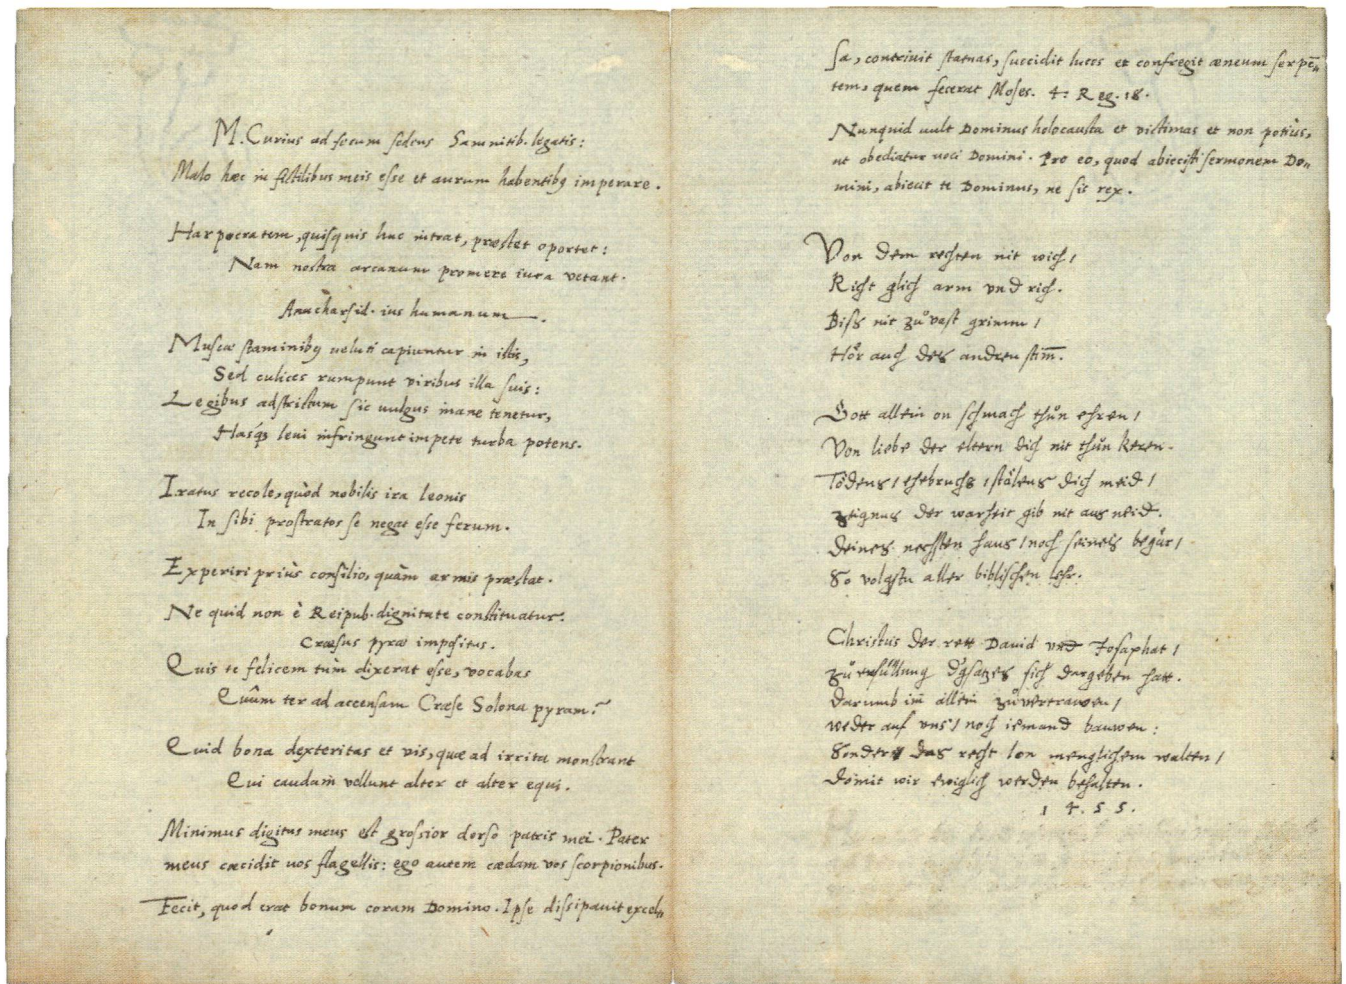 M. Curius ad focum sedens Samnitib. legatis:
Malo hæc in fictilibus meis esse et aurum habentibꝰ imperare.
Harpocratem, quisquis huc intrat, præstet oportet:
Nam nostra arcanum promere iura vetant.
Anacharsid. ius humanum.
Muscæ staminibꝰ veluti capiuntur in istis,
Sed culices rumpunt viribus illa suis:
Legibus adstrictum sic vulgus inane tenetur,
Hasq́ꝫ leui infringunt impete turba potens.
Iratus recole, quòd nobilis ira leonis
In sibi prostratos se negat esse ferum.
Experiri priùs consilio, quàm armis præstat.
Ne quid non è Reipub. dignitate constituatur.
Cræsus pyræ impositus.
Quis te felicem tùm dixerat esse, vocabas
Quùm ter ad accensam Cræse Solona pyram?
Quid bona dexteritas et vis, quæ ad irrita monstrant
Qui caudam vellunt alter et alter equi.
Minimus digitus meus est grossior dorso patris mei. Pater
meus cæcidit uos flagellis: ego autem cædam vos scorpionibus.
Fecit, quod erat bonum coram Domino. Ipse dissipauit excel-
sa, contriuit statuas, succidit lucos et confregit æneum serpē-
tem, quem fecerat Moses. 4: Reg. 18.
Nunquid uult Dominus holocausta et victimas et non potiùs,
ut obediatur uoci Domini. Pro eo, quod abiecisti sermonem Do-
mini, abiecit te Dominus, ne sis rex.
Von dem rechten nit wich /
Richt glich arm vnd rich.
Biss nit zů vast grimm /
Hör auch des andren stim̄.
Gott allein on schmach thůn ehren /
Von liebe der eltern dich nit thůn keren.
Tödens / ehebruchs / stälens dich meid /
Zügnus der warheit gib nit aus neid.
Deines nechsten haus / noch seines begär /
So volgstu aller biblischen lehr.
Christus der rett Dauid vnd Josaphat /
Zů erfüllung d'gsatzes sich dargeben hatt.
Darumb im allein zůvertrawen /
weder auf vns / noch iemand bauwen:
Sonder das recht lon menglichem walten /
Domit wir ewiglich werden behalten.
1 4. 5 5.